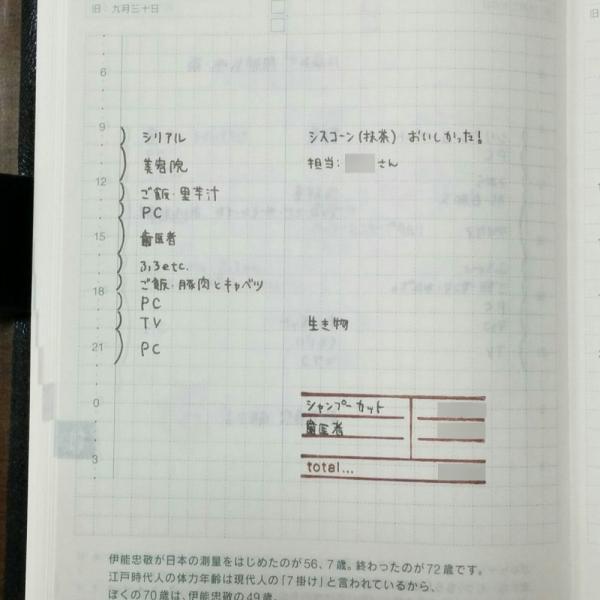 旧：九月三十日
6
9 シリアル シスコーン(抹茶) おいしかった!
美容院 担当: さん
12 ご飯・里芋汁
PC
15 歯医者
ふろetc.
ご飯・豚肉とキャベツ
18 PC
TV 生き物
21 PC
0 シャンプーカット
歯医者
3 total...
伊能忠敬が日本の測量をはじめたのが56、7歳。終わったのが72歳です。
江戸時代人の体力年齢は現代人の「7掛け」と言われているから、
ぼくの70歳は、伊能忠敬の49歳。